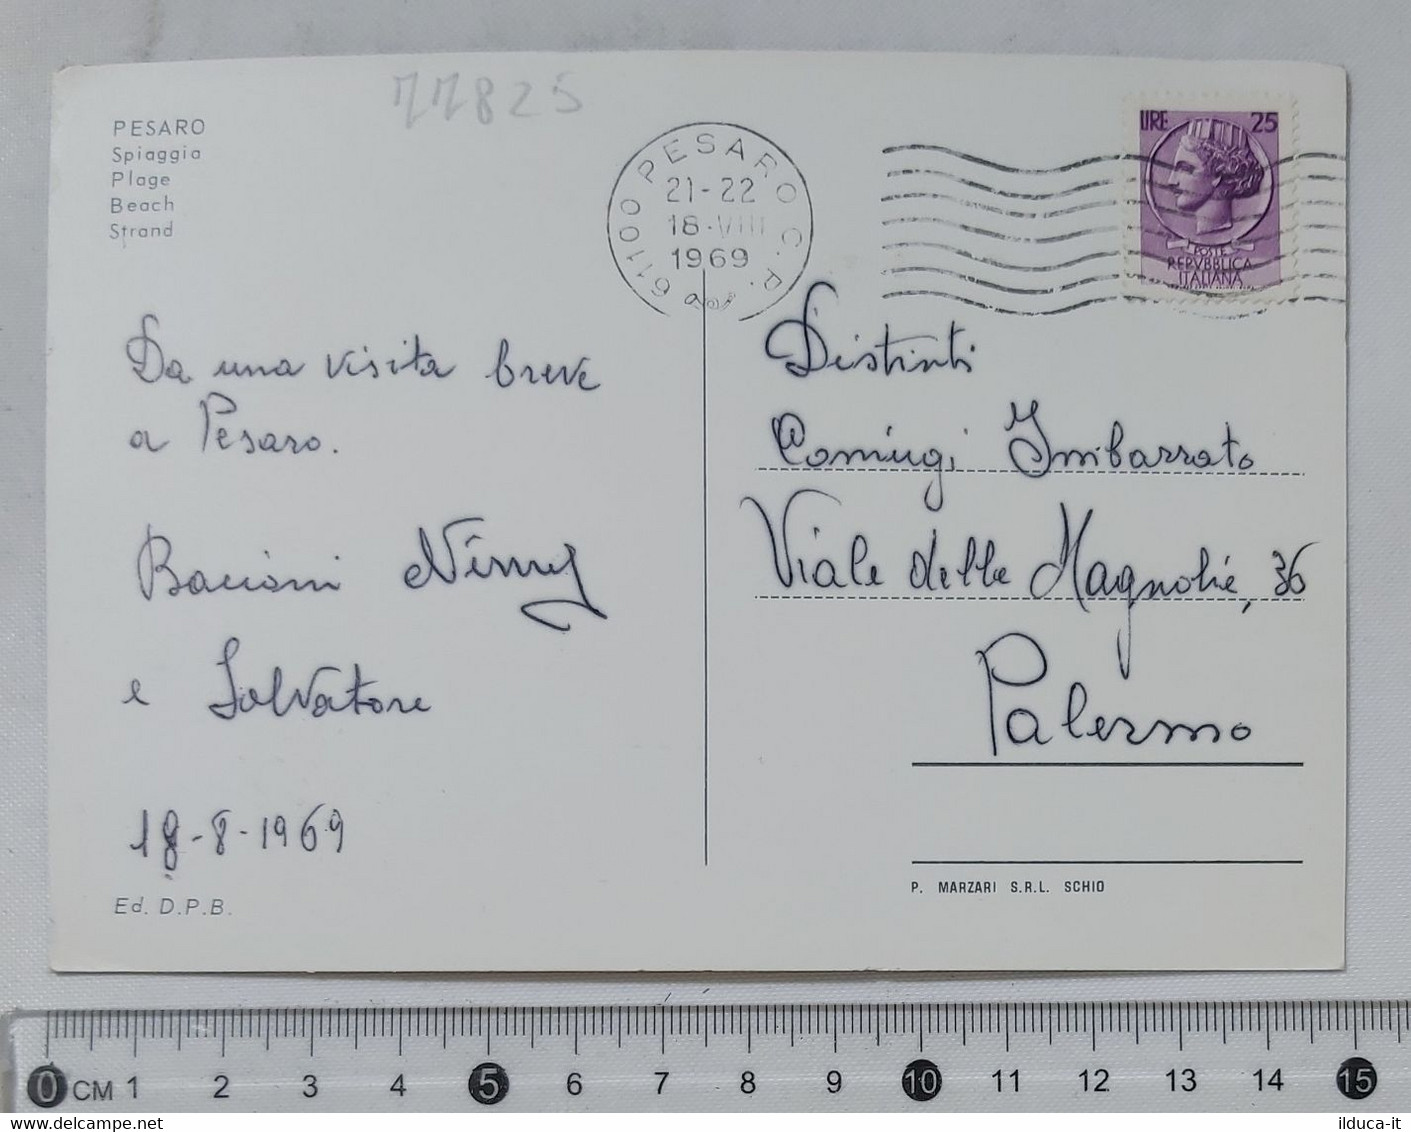 77825
PESARO
Spiaggia
Plage
Beach
Strand
61100 PESARO C.P.
21-22
18-VIII
1969
LIRE 25
POSTE
REPVBBLICA
ITALIANA
Da una visita breve
a Pesaro.
Bacioni Ninny
e Salvatore
18-8-1969
Ed. D.P.B.
Distinti
Coniugi Imbarrato
Viale delle Magnolie, 36
Palermo
P. MARZARI S.R.L. SCHIO
0 CM 1 2 3 4 5 6 7 8 9 10 11 12 13 14 15
www.delcampe.net
ilduca-it